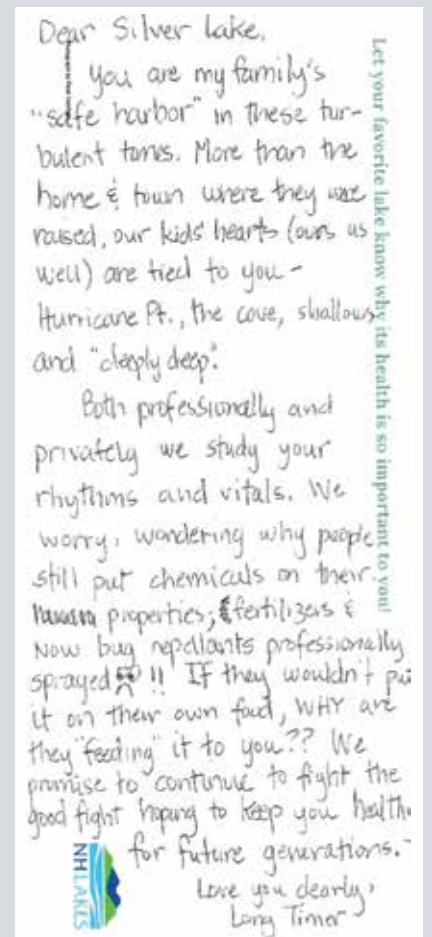 Dear Silver Lake,
You are my family's
"safe harbor" in these tur-
bulent times. More than the
home & town where they were
raised, our kids' hearts (ours as
well) are tied to you -
Hurricane Pt., the cove, shallows
and "deeply deep".
Both professionally and
privately we study your
rhythms and vitals. We
worry, wondering why people
still put chemicals on their
properties; fertilizers &
now bug repellants professionally
sprayed !! If they wouldn't pu
it on their own food, WHY are
they "feeding" it to you?? We
promise to continue to fight the
good fight hoping to keep you health
for future generations.
Love you dearly,
Long Timer
Let your favorite lake know why its health is so important to you!
NH LAKES